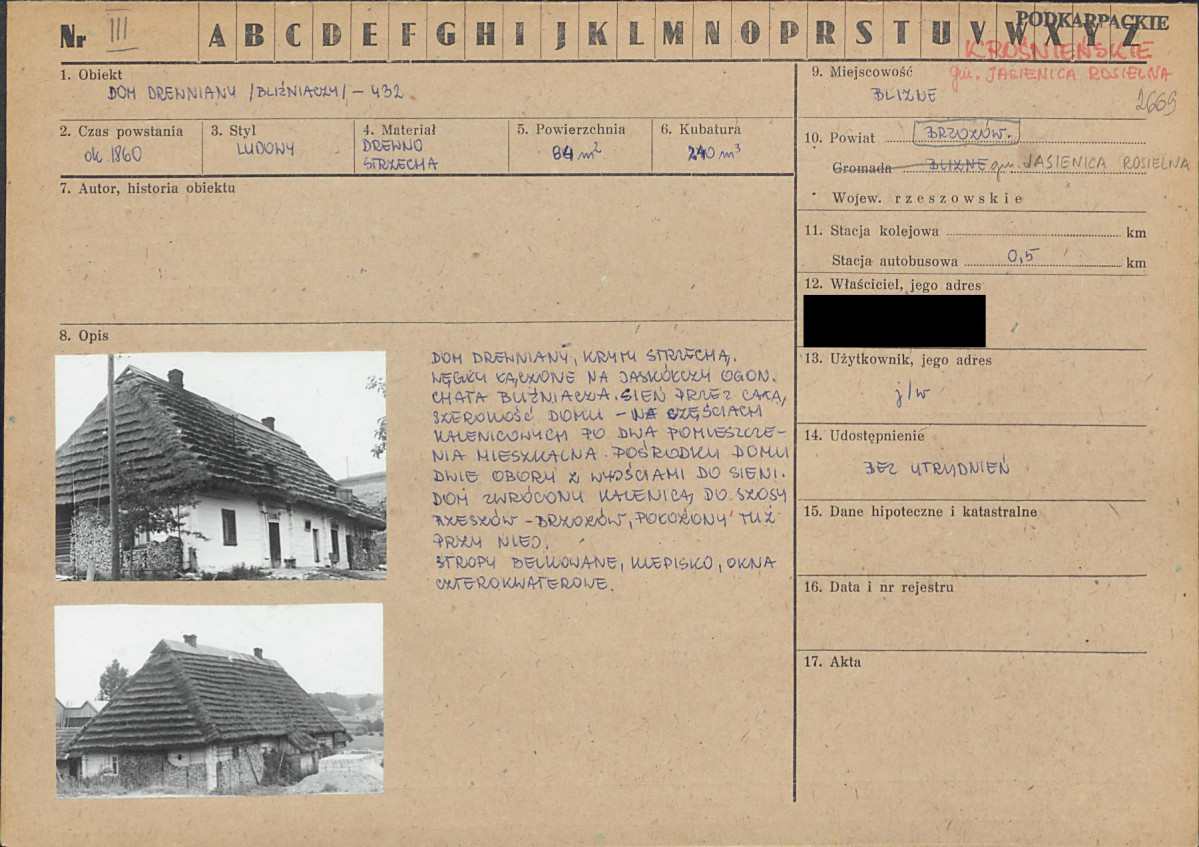 Nr III A B C D E F G H I J K L M N O P R S T U V W X Y Z
PODKARPACKIE
KROŚNIEŃSKIE
gm. JASIENICA ROSIELNA
2669
1. Obiekt
DOM DREWNIANY /BLIŹNIACZY/ – 432
2. Czas powstania
ok. 1860
3. Styl
LUDOWY
4. Materiał
DREWNO
STRZECHA
5. Powierzchnia
84 m²
6. Kubatura
240 m³
7. Autor, historia obiektu
8. Opis
DOM DREWNIANY, KRYTY STRZECHĄ.
WĘGŁY ŁĄCZONE NA JASKÓŁCZY OGON.
CHATA BLIŹNIACZA. SIEŃ PRZEZ CAŁĄ
SZEROKOŚĆ DOMU – W CZĘŚCIACH
KALENICOWYCH PO DWA POMIESZCZE-
NIA MIESZKALNA. POŚRODKU DOMU
DWIE OBORY Z WYJŚCIAMI DO SIENI.
DOM ZWRÓCONY KALENICĄ DO SZOSY
RZESZÓW – BRZOZÓW, POŁOŻONY TUŻ
PRZY NIEJ.
STROPY BELKOWANE, KLEPISKO, OKNA
CZTEROKWATEROWE.
9. Miejscowość
BLIZNE
10. Powiat BRZOZÓW.
Gromada BLIZNE gm. JASIENICA ROSIELNA
Wojew. rzeszowskie
11. Stacja kolejowa km
Stacja autobusowa 0,5 km
12. Właściciel, jego adres
13. Użytkownik, jego adres
j/w
14. Udostępnienie
BEZ UTRUDNIEŃ
15. Dane hipoteczne i katastralne
16. Data i nr rejestru
17. Akta